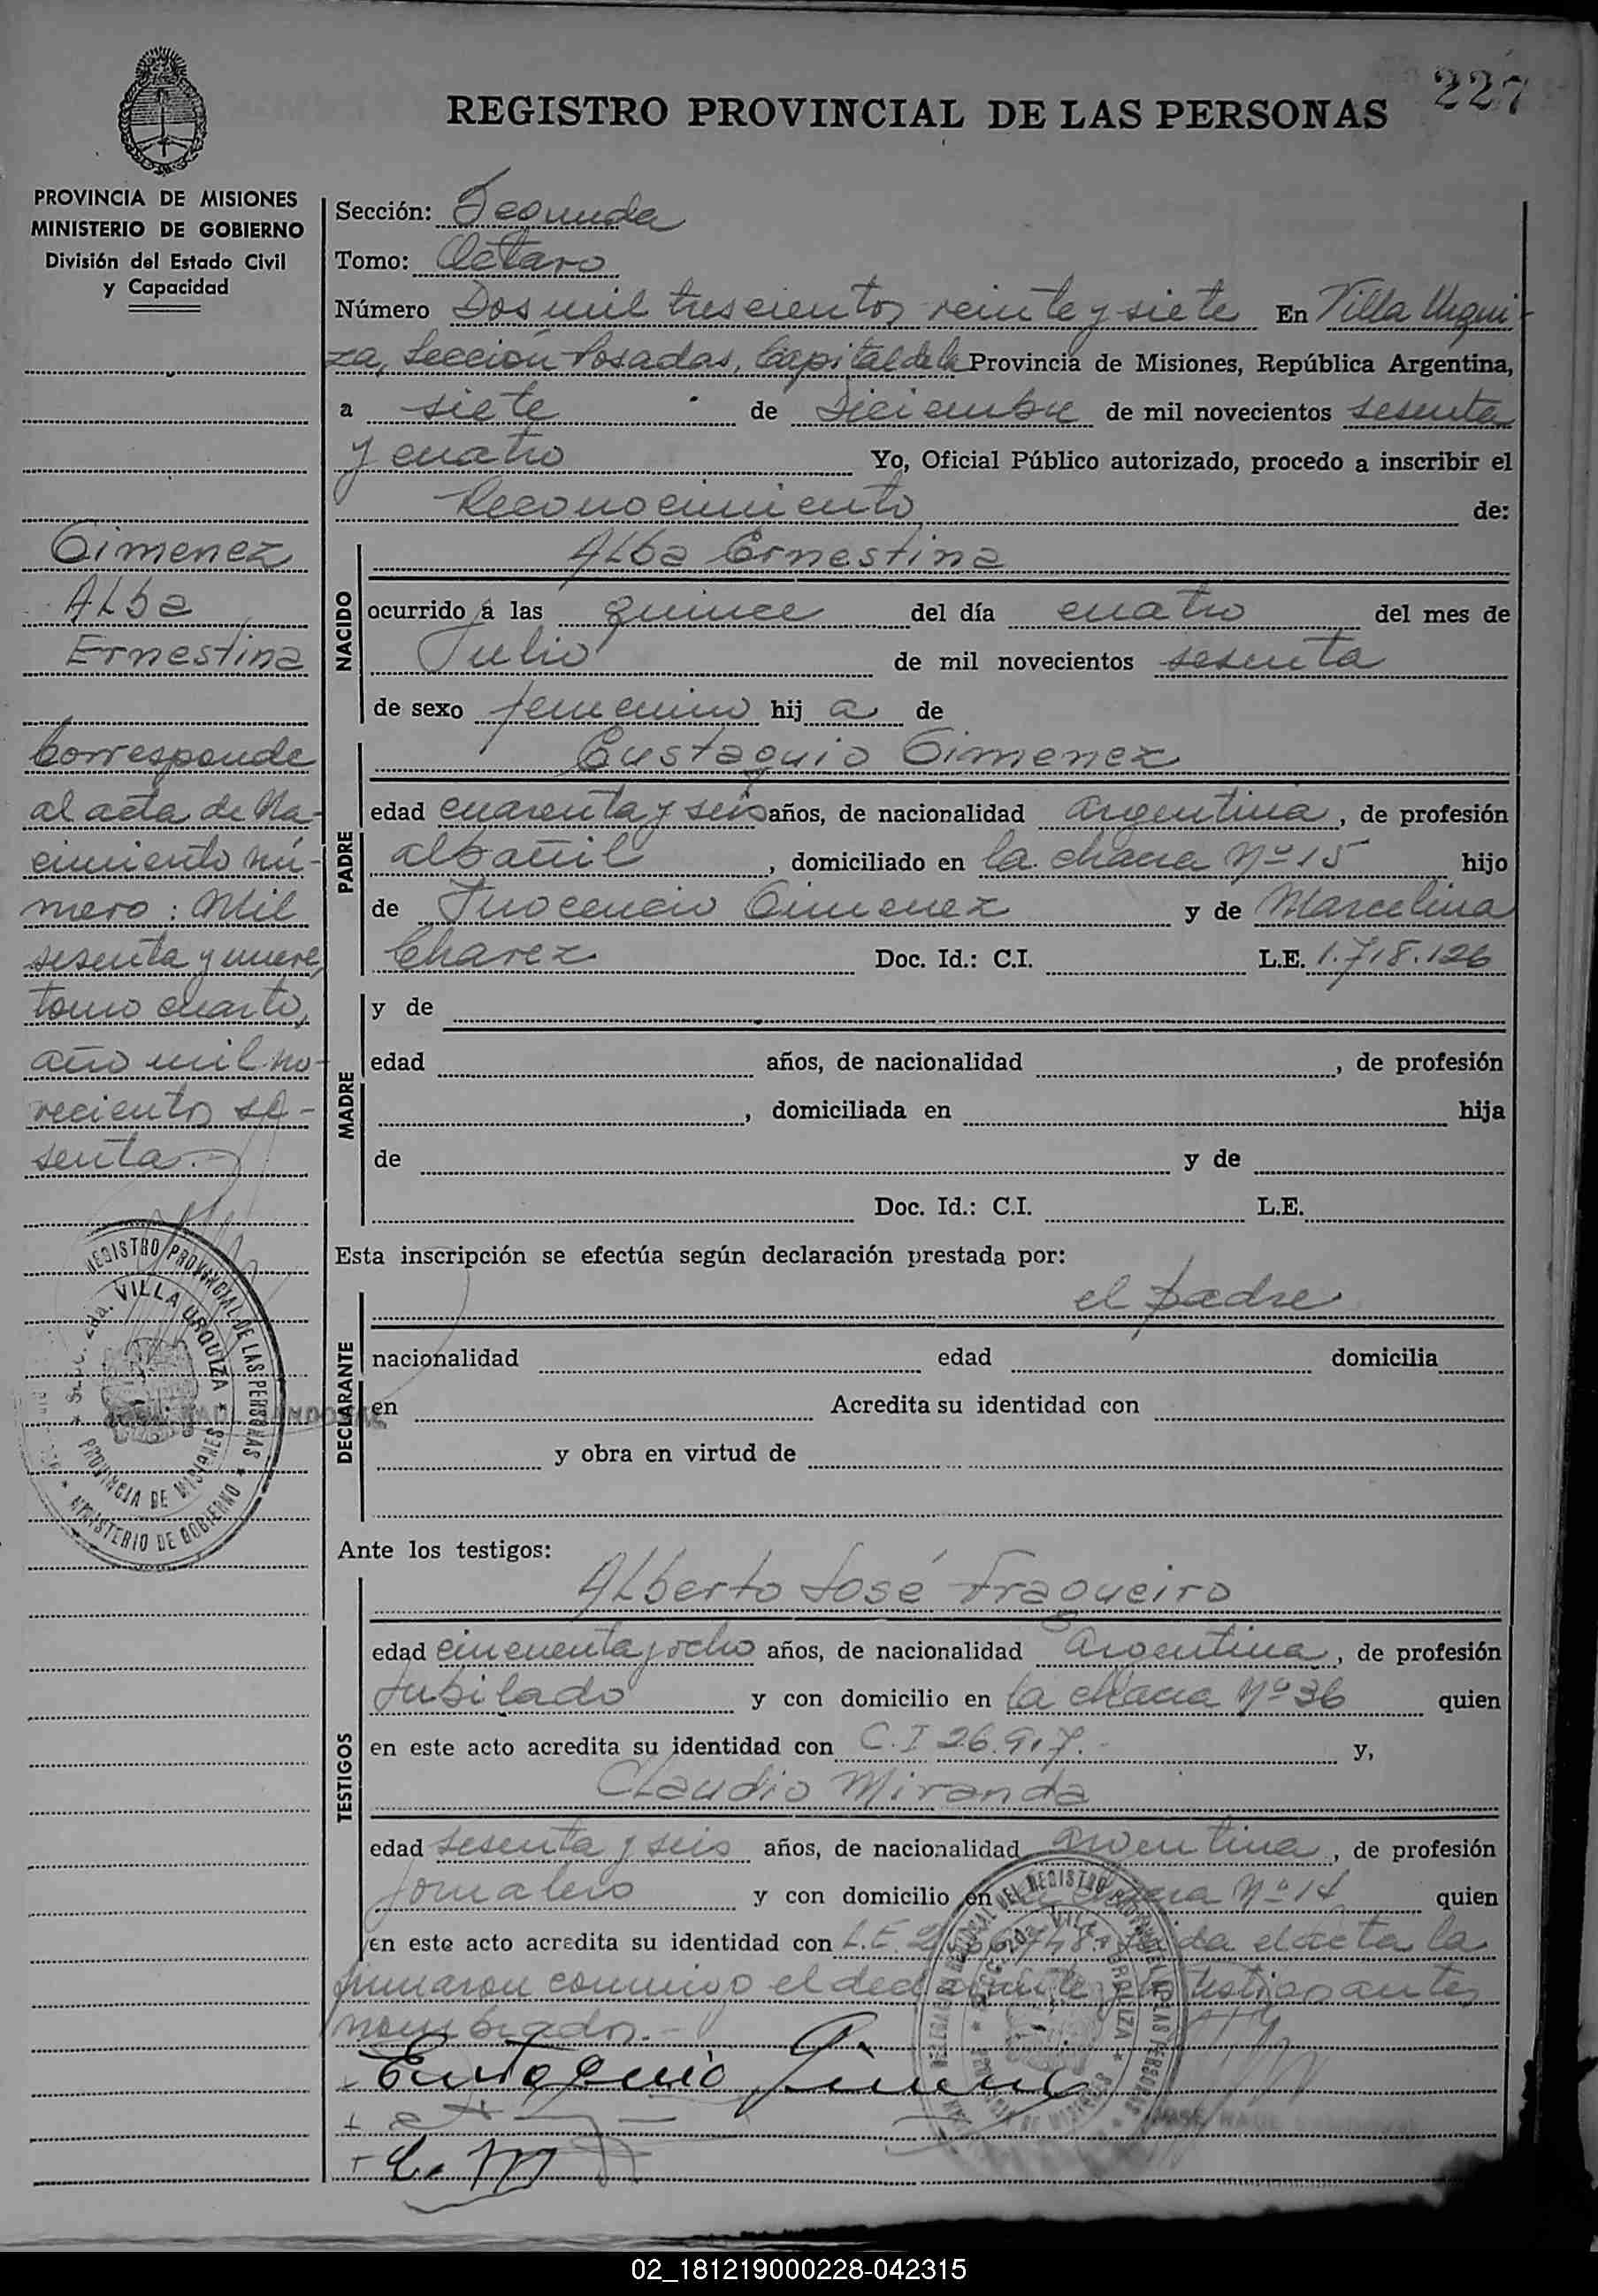 227
REGISTRO PROVINCIAL DE LAS PERSONAS
PROVINCIA DE MISIONES
MINISTERIO DE GOBIERNO
División del Estado Civil
y Capacidad
Gimenez
Alba
Ernestina
Corresponde
al acta de Na-
cimiento nú-
mero: Mil
sesenta y nueve,
tomo cuarto,
año mil no-
vecientos se-
senta.-
REGISTRO PROVINCIAL DE LAS PERSONAS
VILLA URQUIZA
PROVINCIA DE MISIONES
MINISTERIO DE GOBIERNO
Sección: Segunda
Tomo: Octavo
Número Dos mil trescientos veinte y siete En Villa Urqui-
za, Sección Posadas, Capital de la Provincia de Misiones, República Argentina,
a siete de Diciembre de mil novecientos sesenta
y cuatro Yo, Oficial Público autorizado, procedo a inscribir el
Reconocimiento de:
NACIDO
Alba Ernestina
ocurrido a las quince del día cuatro del mes de
Julio de mil novecientos sesenta
de sexo femenino hij a de
PADRE
Eustaquio Gimenez
edad cuarenta y seis años, de nacionalidad argentina, de profesión
albañil, domiciliado en la chacra Nº 15 hijo
de Inocencio Gimenez y de Marcelina
Chavez Doc. Id.: C.I. L.E. 1.718.126
MADRE
y de
edad años, de nacionalidad , de profesión
, domiciliada en hija
de y de
Doc. Id.: C.I. L.E.
Esta inscripción se efectúa según declaración prestada por:
DECLARANTE
el padre
nacionalidad edad domicilia
en Acredita su identidad con
y obra en virtud de
Ante los testigos:
TESTIGOS
Alberto José Fragueiro
edad cincuenta y ocho años, de nacionalidad argentina, de profesión
Jubilado y con domicilio en la chacra Nº 36 quien
en este acto acredita su identidad con C.I 26.917.- y,
Claudio Miranda
edad sesenta y seis años, de nacionalidad argentina, de profesión
Jornalero y con domicilio en chacra Nº 14 quien
en este acto acredita su identidad con L.E. el acta la
firmaron conmigo el declarante y testigos antes
nombrados.-
Eustaquio Gimenez
C. M
02_181219000228-042315